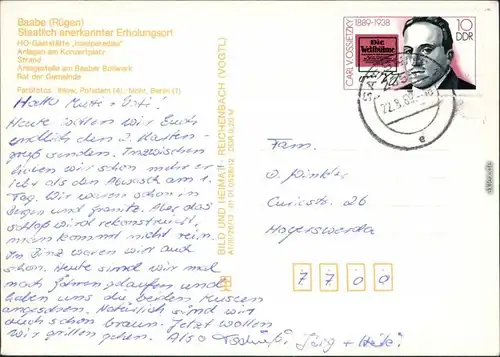 Baabe (Rügen)
Staatlich anerkannter Erholungsort
HO-Gaststätte „Inselparadies"
Anlagen am Konzertplatz
Strand
Anlegestelle am Baaber Bollwerk
Rat der Gemeinde
Farbfotos: Ihlow, Potsdam (4) · Mohr, Berlin (1)
Hallo Mutti + Vati!
Heute wollen wir Euch
endlich den 2. Karten-
gruß senden. Inzwischen
haben wir schon mehr er-
lebt als den Abwasch am 1.
Tag. Wir waren schon in
Bergen und Granitz. Aber das
Schloß wird rekonstruiert,
man kommt nicht rein.
In Binz waren wir auch
schon. Heute sind wir mal
nach gefahren und
haben uns die beiden Museen
angesehen. Natürlich sind wir
auch schon braun. Jetzt wollen
wir grillen gehen. Also Tschüß! Jörg + Heidi
BILD UND HEIMAT REICHENBACH (VOGTL)
A1/III/26/13 01 01 0528/12 DDR 0,20 M
CARL V. OSSIETZKY
1889-1938
Die
Weltbühne
10
DDR
22.8.89
Fam.
O. Winkler
Curiestr. 26
Hoyerswerda
7 7 0 0